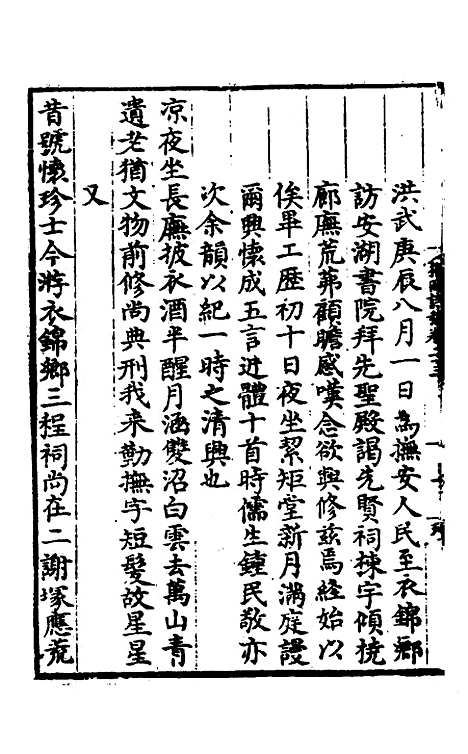 洪武庚辰八月一日為撫安人民至衣錦鄉
訪安湖書院拜先聖殿謁先賢祠棟宇傾撓
廊廡荒茀顧瞻感嘆念欲興修茲焉經始以
俟畢工歷初十日夜坐絜矩堂新月滿庭謾
爾興懷成五言近體十首時儒生鍾民敬亦
次余韻以紀一時之清興也
凉夜坐長廡披衣酒半醒月涵雙沼白雲去萬山青
遺老猶文物前修尚典刑我来勤撫字短髮故星星
又
昔號懷珍士今游衣錦鄉三程祠尚在二謝塚應荒